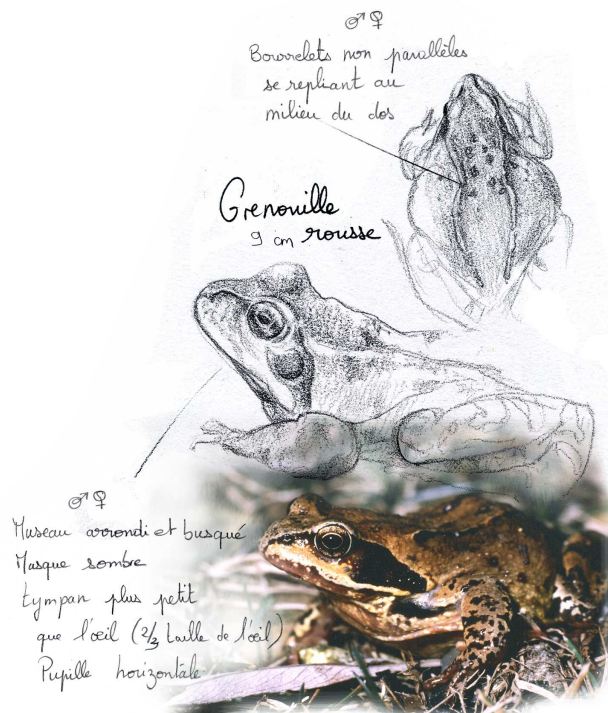 ♂♀
Bourrelets non parallèles
se repliant au
milieu du dos
Grenouille
9 cm rousse
♂♀
Museau arrondi et busqué
Masque sombre
tympan plus petit
que l'œil (2/3 taille de l'œil)
Pupille horizontale